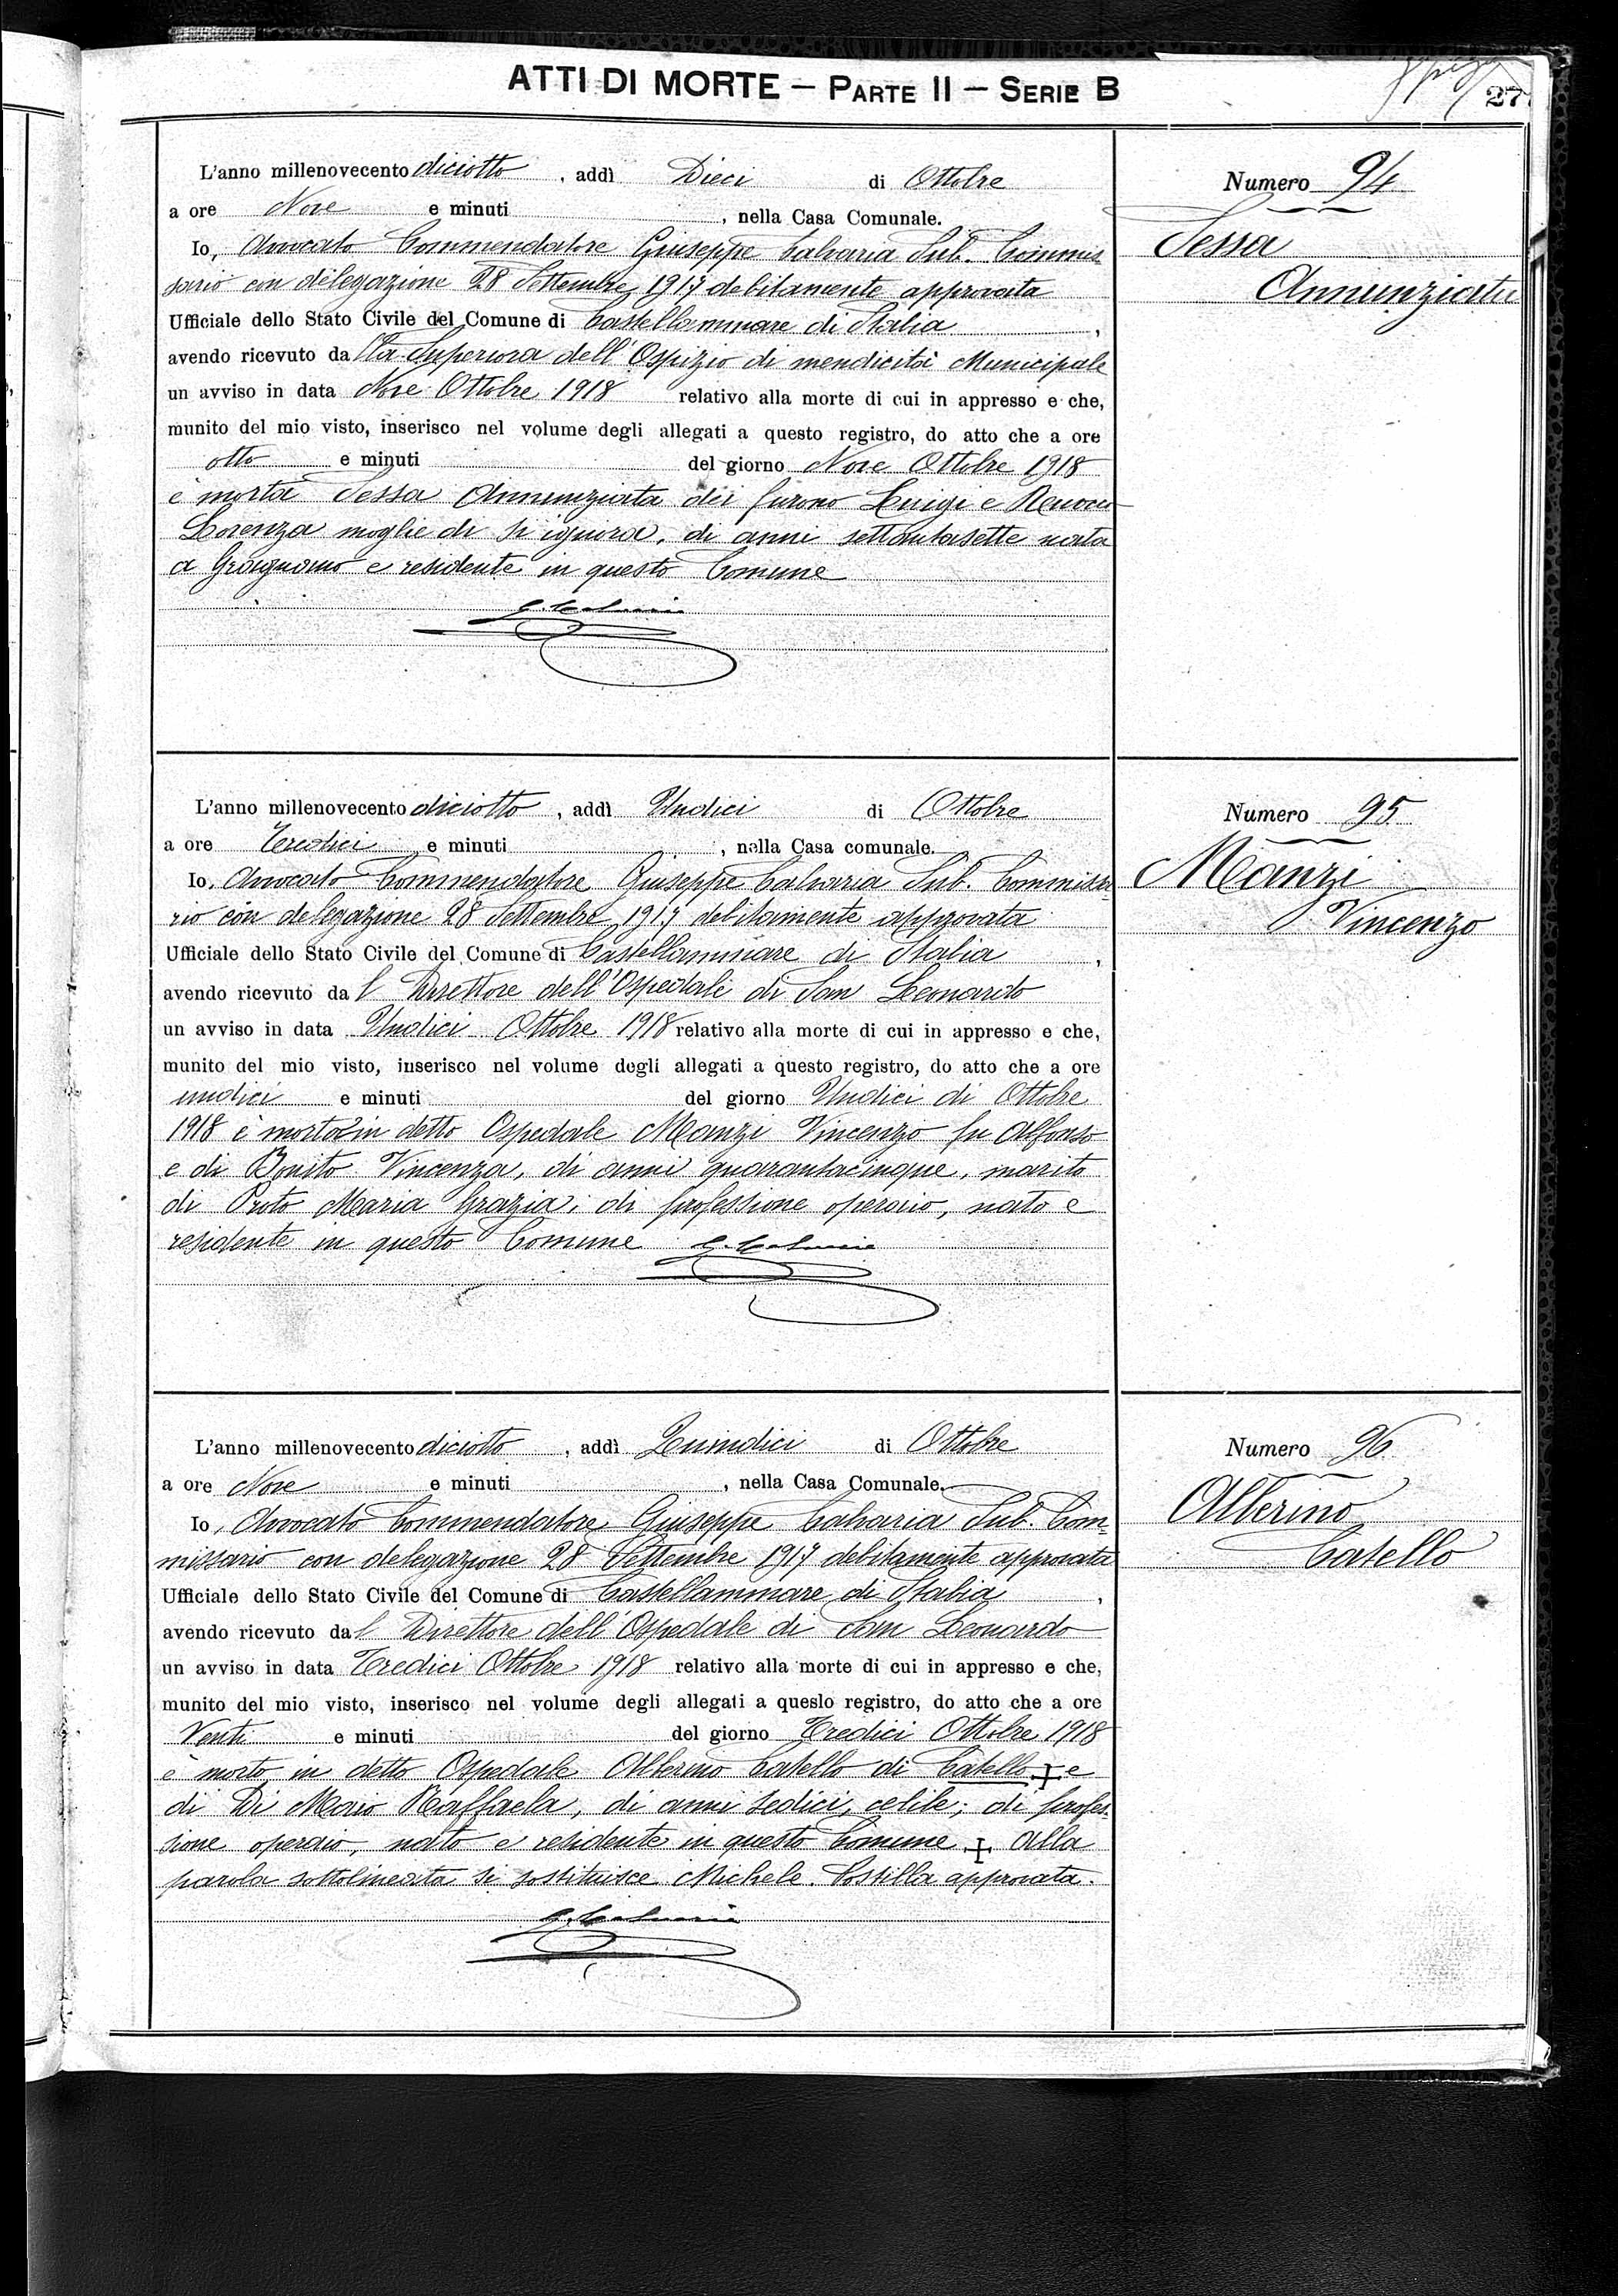 ATTI DI MORTE — PARTE II — SERIE B
27
L'anno millenovecento diciotto, addì Dieci di Ottobre
Numero 94
a ore Nove e minuti , nella Casa Comunale.
Io, Avvocato Commendatore Giuseppe Calvaria Sub. Commis
Sessa
sario con delegazione 28 Settembre 1917 debitamente approvata
Annunziata
Ufficiale dello Stato Civile del Comune di Castellammare di Stabia,
avendo ricevuto da lla Superiora dell'Ospizio di mendicità Municipale
un avviso in data Nove Ottobre 1918 relativo alla morte di cui in appresso e che,
munito del mio visto, inserisco nel volume degli allegati a questo registro, do atto che a ore
otto e minuti del giorno Nove Ottobre 1918
è morta Sessa Annunziata dei furono Luigi e
Lorenza moglie di si ignora, di anni settantasette nata
a Gragnano e residente in questo Comune
L'anno millenovecento diciotto, addì Undici di Ottobre
Numero 95
a ore Tredici e minuti , nella Casa comunale.
Io, Avvocato Commendatore Giuseppe Calvaria Sub. Commissa
Manzi
rio con delegazione 28 Settembre 1917 debitamente approvata
Vincenzo
Ufficiale dello Stato Civile del Comune di Castellammare di Stabia,
avendo ricevuto da l Direttore dell'Ospedale di San Leonardo
un avviso in data Undici Ottobre 1918 relativo alla morte di cui in appresso e che,
munito del mio visto, inserisco nel volume degli allegati a questo registro, do atto che a ore
undici e minuti del giorno Undici di Ottobre
1918 è morto in detto Ospedale Manzi Vincenzo fu Alfonso
e di Bonito Vincenza, di anni quarantacinque, marito
di Proto Maria Grazia, di professione operaio, nato e
residente in questo Comune
L'anno millenovecento diciotto, addì Quindici di Ottobre
Numero 96
a ore Nove e minuti , nella Casa Comunale.
Io, Avvocato Commendatore Giuseppe Calvaria Sub. Com-
Alberino
missario con delegazione 28 Settembre 1917 debitamente approvata
Catello
Ufficiale dello Stato Civile del Comune di Castellammare di Stabia,
avendo ricevuto da l Direttore dell'Ospedale di San Leonardo
un avviso in data Tredici Ottobre 1918 relativo alla morte di cui in appresso e che,
munito del mio visto, inserisco nel volume degli allegati a queslo registro, do atto che a ore
Venti e minuti del giorno Tredici Ottobre 1918
è morto in detto Ospedale Alberino Catello di Catello + e
di Di Maio Raffaela, di anni sedici, celibe, di profes-
sione operaio, nato e residente in questo Comune + Alla
parola sottolineata si sostituisce Michele. Postilla approvata.